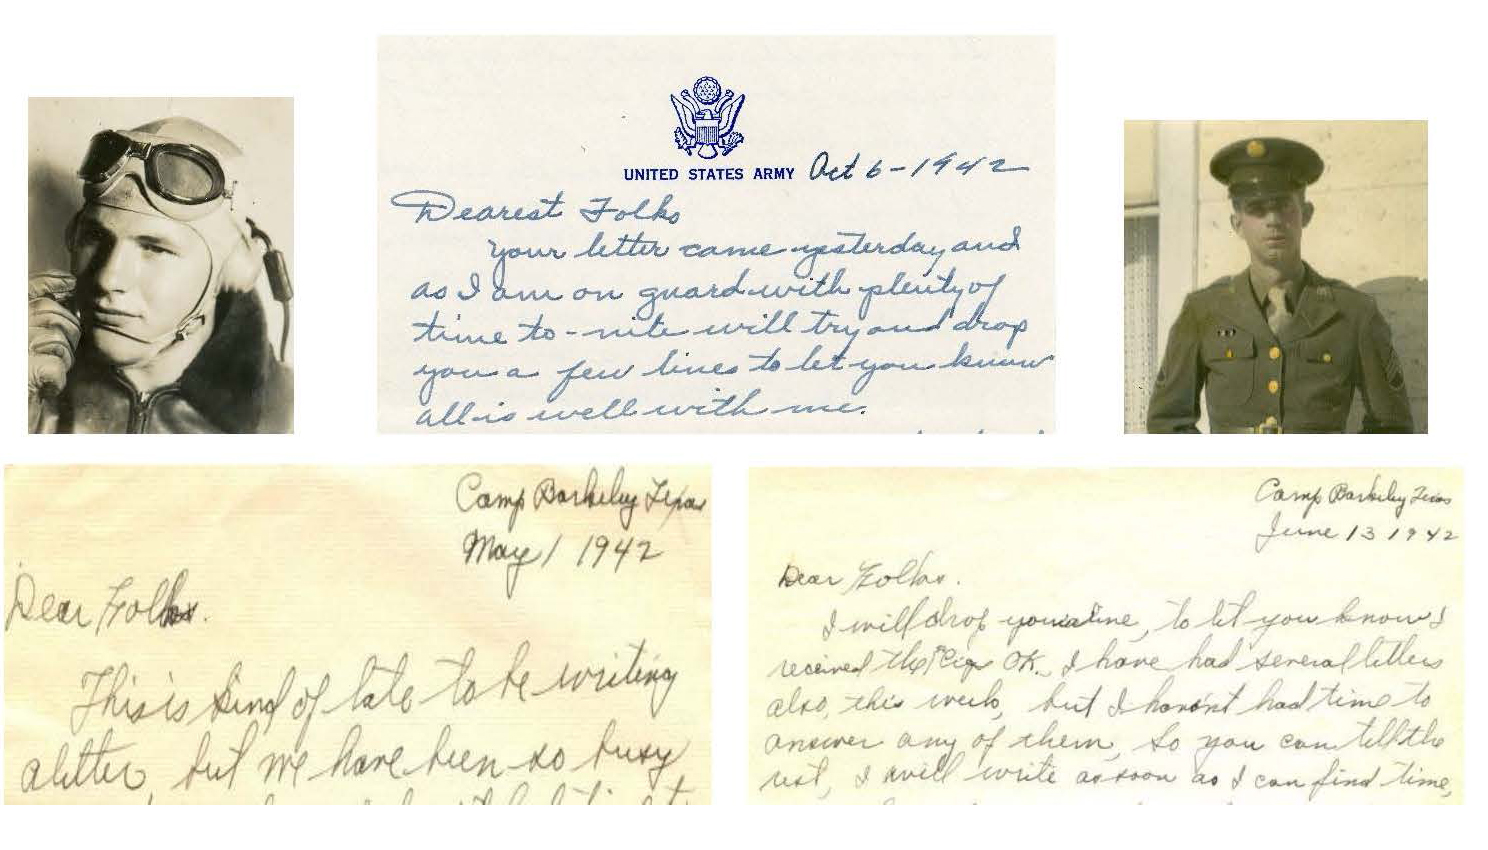 UNITED STATES ARMY Oct 6-1942
Dearest Folks
Your letter came yesterday and
as I am on guard with plenty of
time to-nite will try and drop
you a few lines to let you know
all is well with me.
Camp Barkeley Texas
May 1 1942
Dear Folks.
This is kind of late to be writing
a letter, but we have been so busy
Camp Barkeley Texas
June 13 1942
Dear Folks.
I will drop you a line, to let you know I
received the OK. I have had several letters
also, this week, but I haven't had time to
answer any of them, so you can tell the
rest, I will write as soon as I can find time,